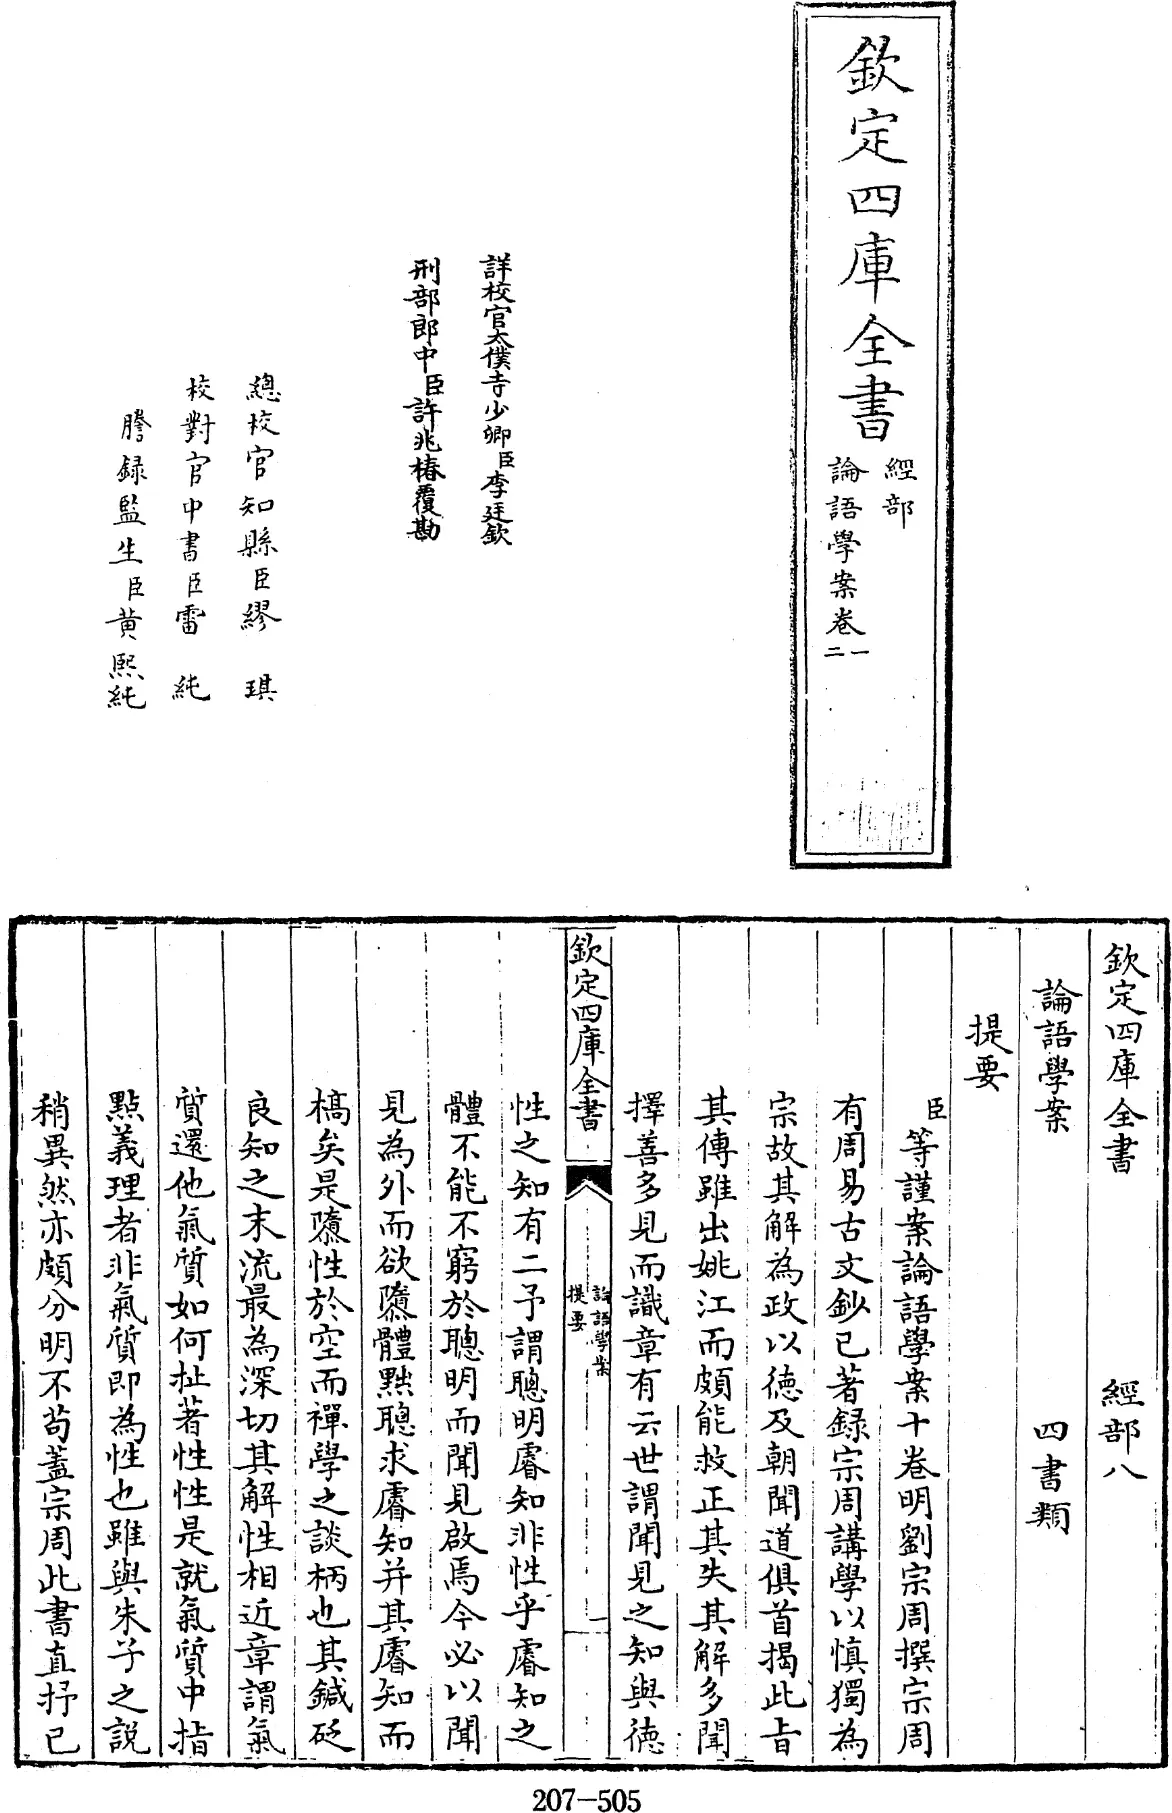 欽定四庫全書
經部
論語學案卷一
二
詳校官太僕寺少卿臣李廷欽
刑部郎中臣許兆椿覆勘
總校官知縣臣繆琪
校對官中書臣雷純
謄録監生臣黄熙純
欽定四庫全書 經部八
論語學案 四書類
提要
臣等謹案論語學案十卷明劉宗周撰宗周
有周易古文鈔已著録宗周講學以慎獨為
宗故其解為政以德及朝聞道俱首揭此旨
其傳雖出姚江而頗能救正其失其解多聞
擇善多見而識章有云世謂聞見之知與德
欽定四庫全書
論語學案
提要
一
性之知有二予謂聰明睿知非性乎睿知之
體不能不窮於聰明而聞見啟焉今必以聞
見為外而欲隳體黜聰求睿知并其睿知而
槁矣是隳性於空而禪學之談柄也其鍼砭
良知之末流最為深切其解性相近章謂氣
質還他氣質如何扯著性性是就氣質中指
點義理者非氣質即為性也雖與朱子之説
稍異然亦頗分明不苟蓋宗周此書直抒已
207-505